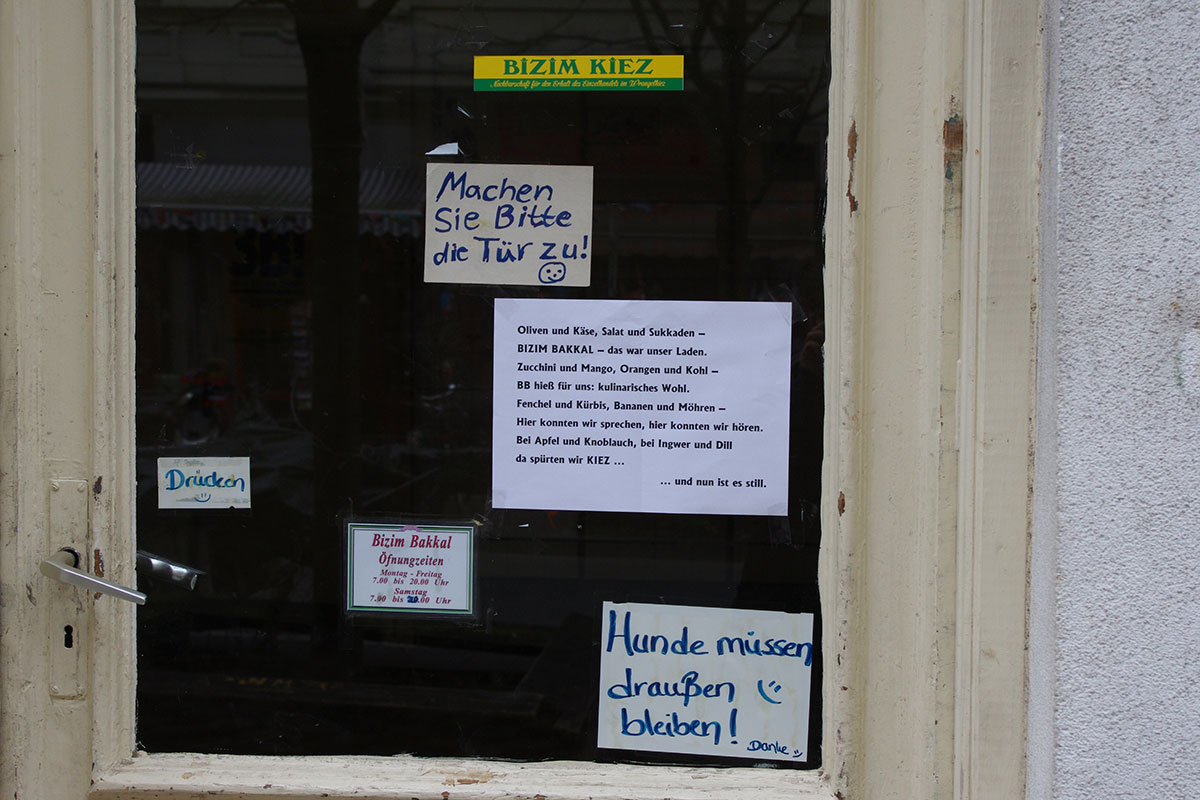 BIZIM KIEZ
Nachbarschaft für den Erhalt des Einzelhandels im Wrangelkiez
Machen
Sie Bitte
die Tür zu!
Oliven und Käse, Salat und Sukkaden –
BIZIM BAKKAL – das war unser Laden.
Zucchini und Mango, Orangen und Kohl –
BB hieß für uns: kulinarisches Wohl.
Fenchel und Kürbis, Bananen und Möhren –
Hier konnten wir sprechen, hier konnten wir hören.
Bei Apfel und Knoblauch, bei Ingwer und Dill
da spürten wir KIEZ ...
... und nun ist es still.
Drücken
Bizim Bakkal
Öfnungzeiten
Montag - Freitag
7.00 bis 20.00 Uhr
Samstag
7.00 bis 20.00 Uhr
Hunde müssen
draußen
bleiben!
Danke